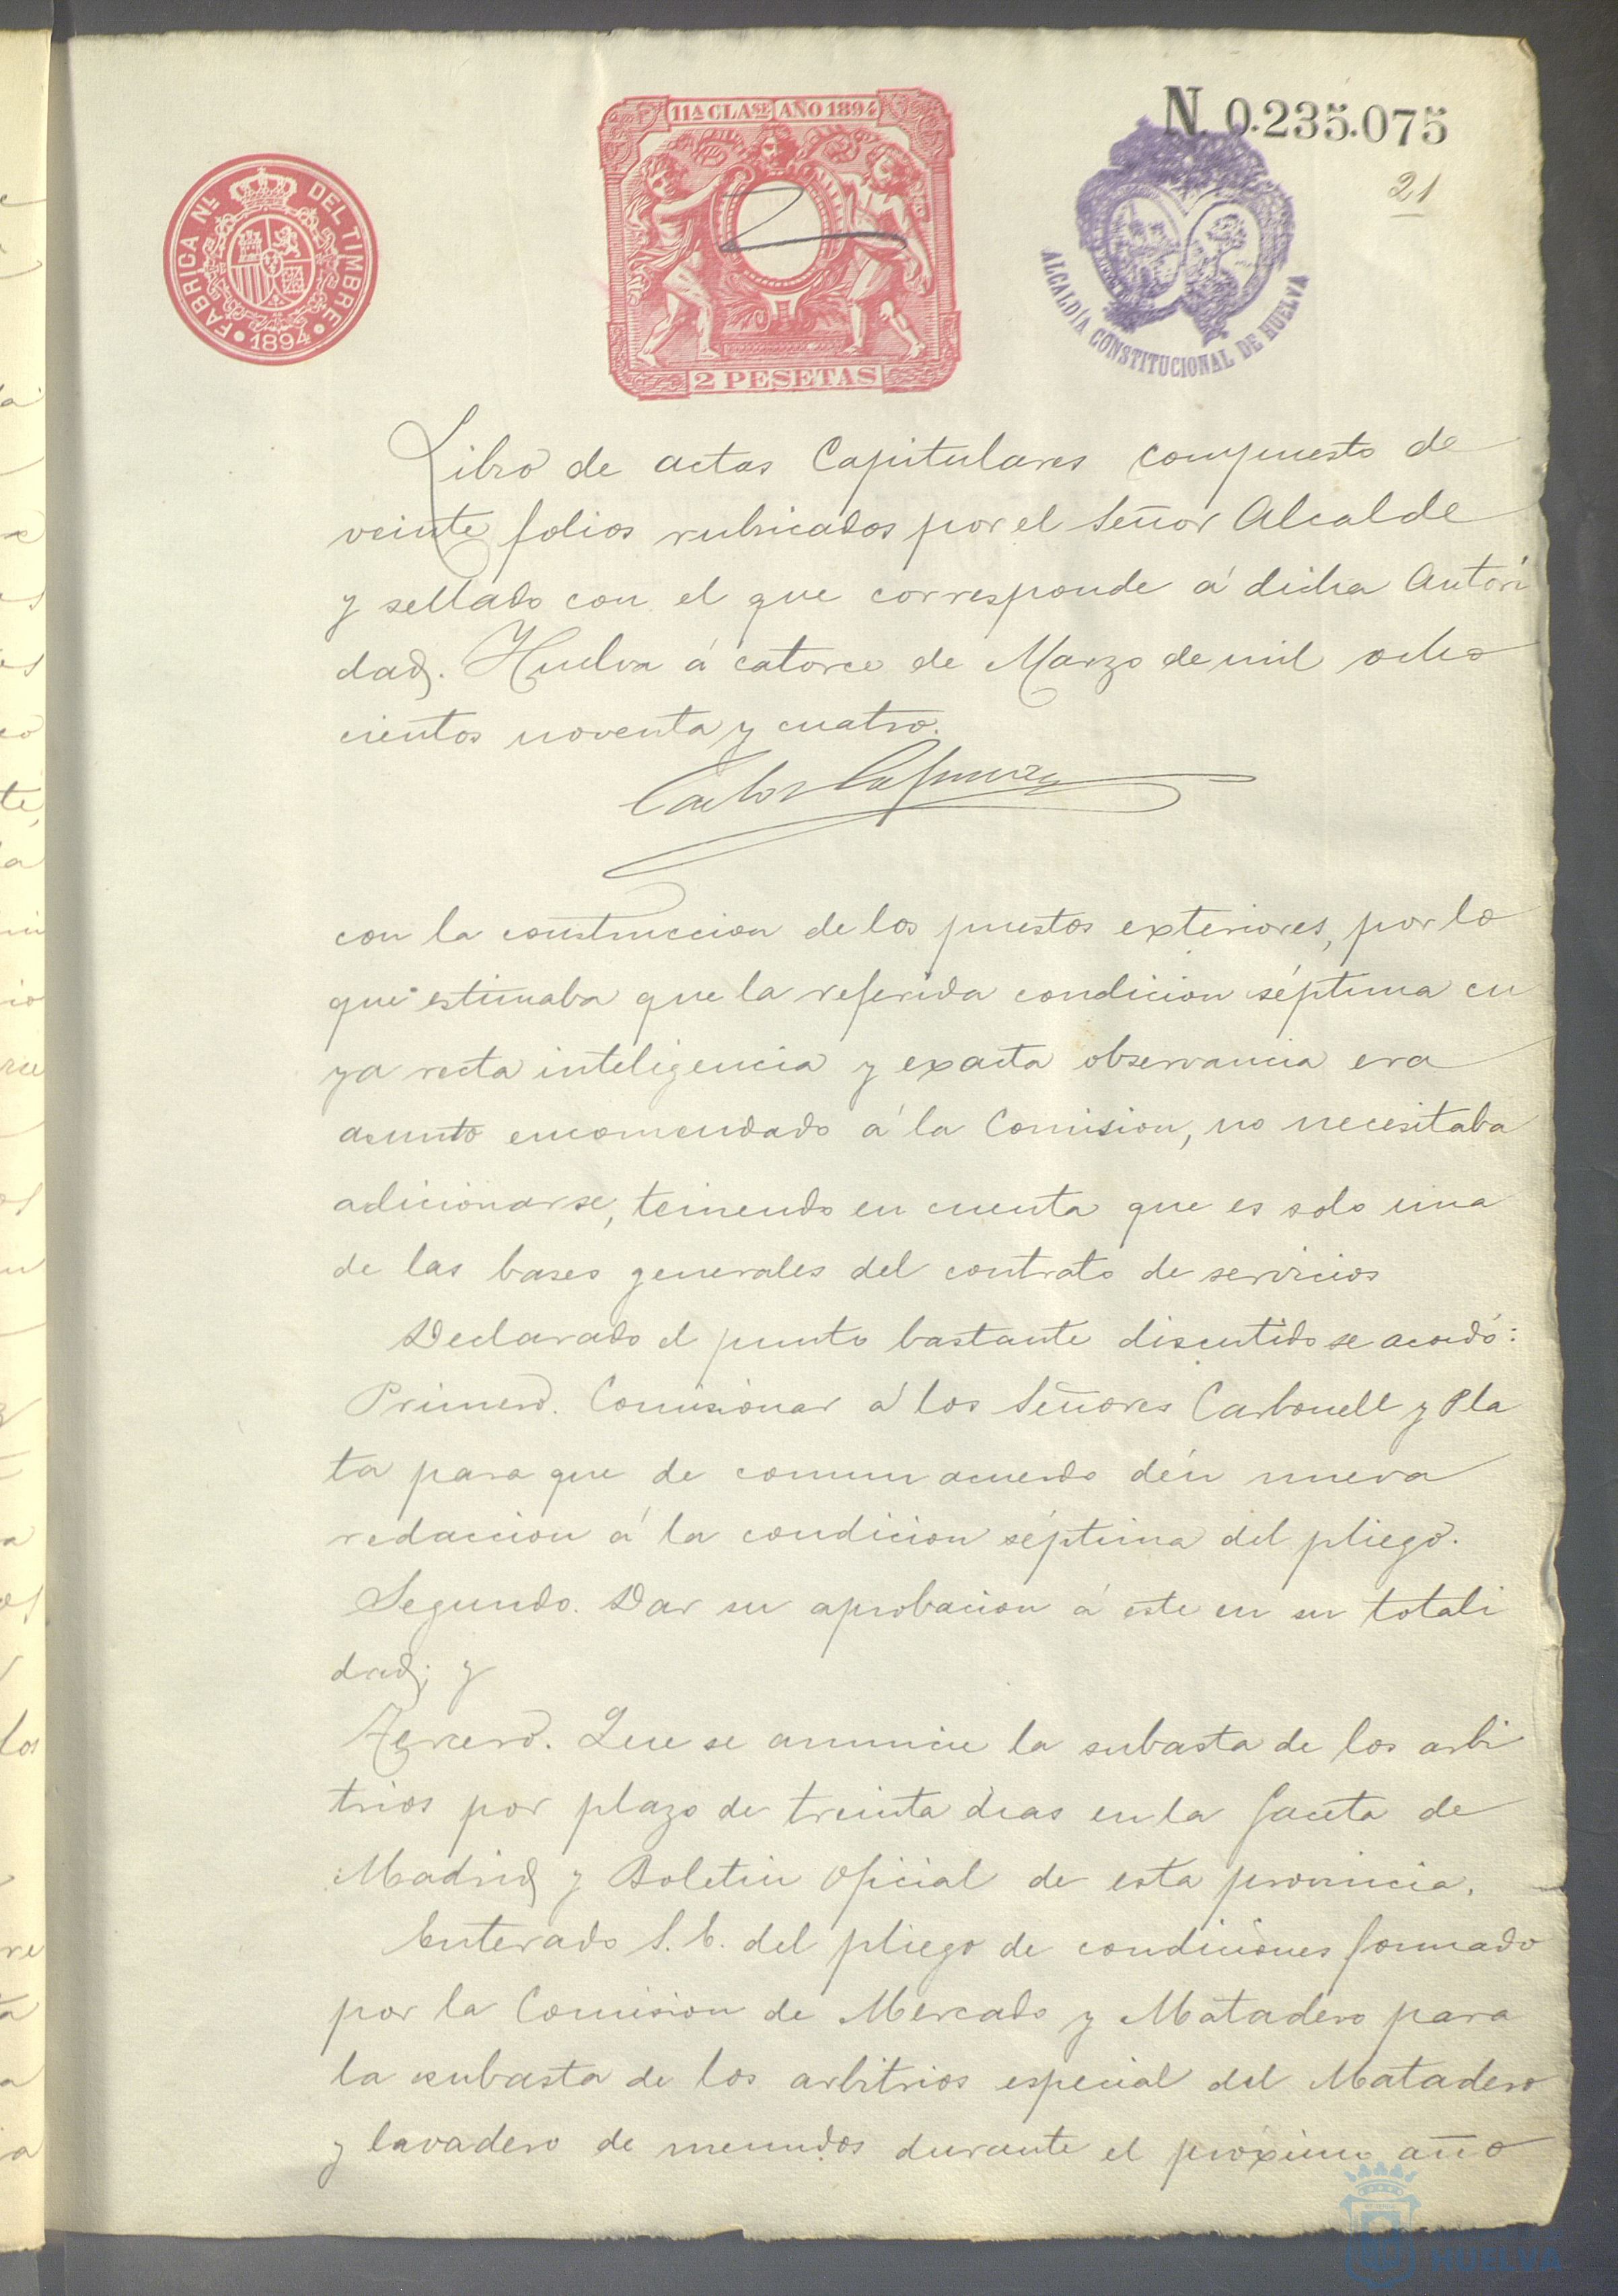 11A CLASE AÑO 1894
N. 0.235.075
21
FABRICA NL. DEL TIMBRE
1894
2 PESETAS
ALCALDÍA CONSTITUCIONAL DE HUELVA
Libro de actas Capitulares compuesto de
veinte folios rubricados por el Señor Alcalde
y sellado con el que corresponde á dicha Autori
dad. Huelva á catorce de Marzo de mil ocho
cientos noventa y cuatro.
Carlos
con la construccion de los puestos exteriores, por lo
que estimaba que la referida condicion séptima cu
ya recta inteligencia y exacta observancia era
asunto encomendado á la Comision, no necesitaba
adicionarse, teniendo en cuenta que es solo una
de las bases generales del contrato de servicios
Declarado el punto bastante discutido se acordó:
Primero. Comisionar á los Señores Carbonell y Pla
ta para que de comun acuerdo dén nueva
redaccion á la condicion séptima del pliego.
Segundo. Dar su aprobacion á este en su totali
dad; y
Tercero. Que se anuncie la subasta de los arbi
trios por plazo de treinta dias en la Gaceta de
Madrid y Boletin Oficial de esta provincia.
Enterado S. E. del pliego de condiciones formado
por la Comision de Mercado y Matadero para
la subasta de los arbitrios especial del Matadero
y lavadero de menudos durante el próximo año
HUELVA